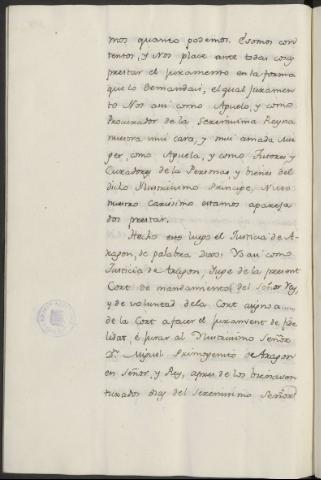 mos quanto podemos. É somos con
tentos, y Nos place ante todas cosas
prestar el juramento en la forma
que lo demandais, el qual juramen
to Nos asi como Aguelo, y como
Procurador de la Serenisima Reyna
nuestra mui cara, y mui amada Mu
ger, como Aguela, y como Tutores y
Curadores de la Persona, y bienes del
dicho Illustrisimo Principe, Nieto
nuestro carisimo estamos apareja
dos prestar.
Hecho esto luego el Justicia de A-
ragon, de palabra dixo: Yo asi como
Justicia de Aragon, Juge de la present
Cort de mandamiento del Señor Rey,
y de voluntad de la Cort asigno a
de la Cort a facer el jurament de fide
lidat, é jurar al Illustrisimo Señor
Dn. Miguel Primogenito de Aragon
en Señor, y Rey, apres de los bienaven
turados dias del Serenisimo Señor